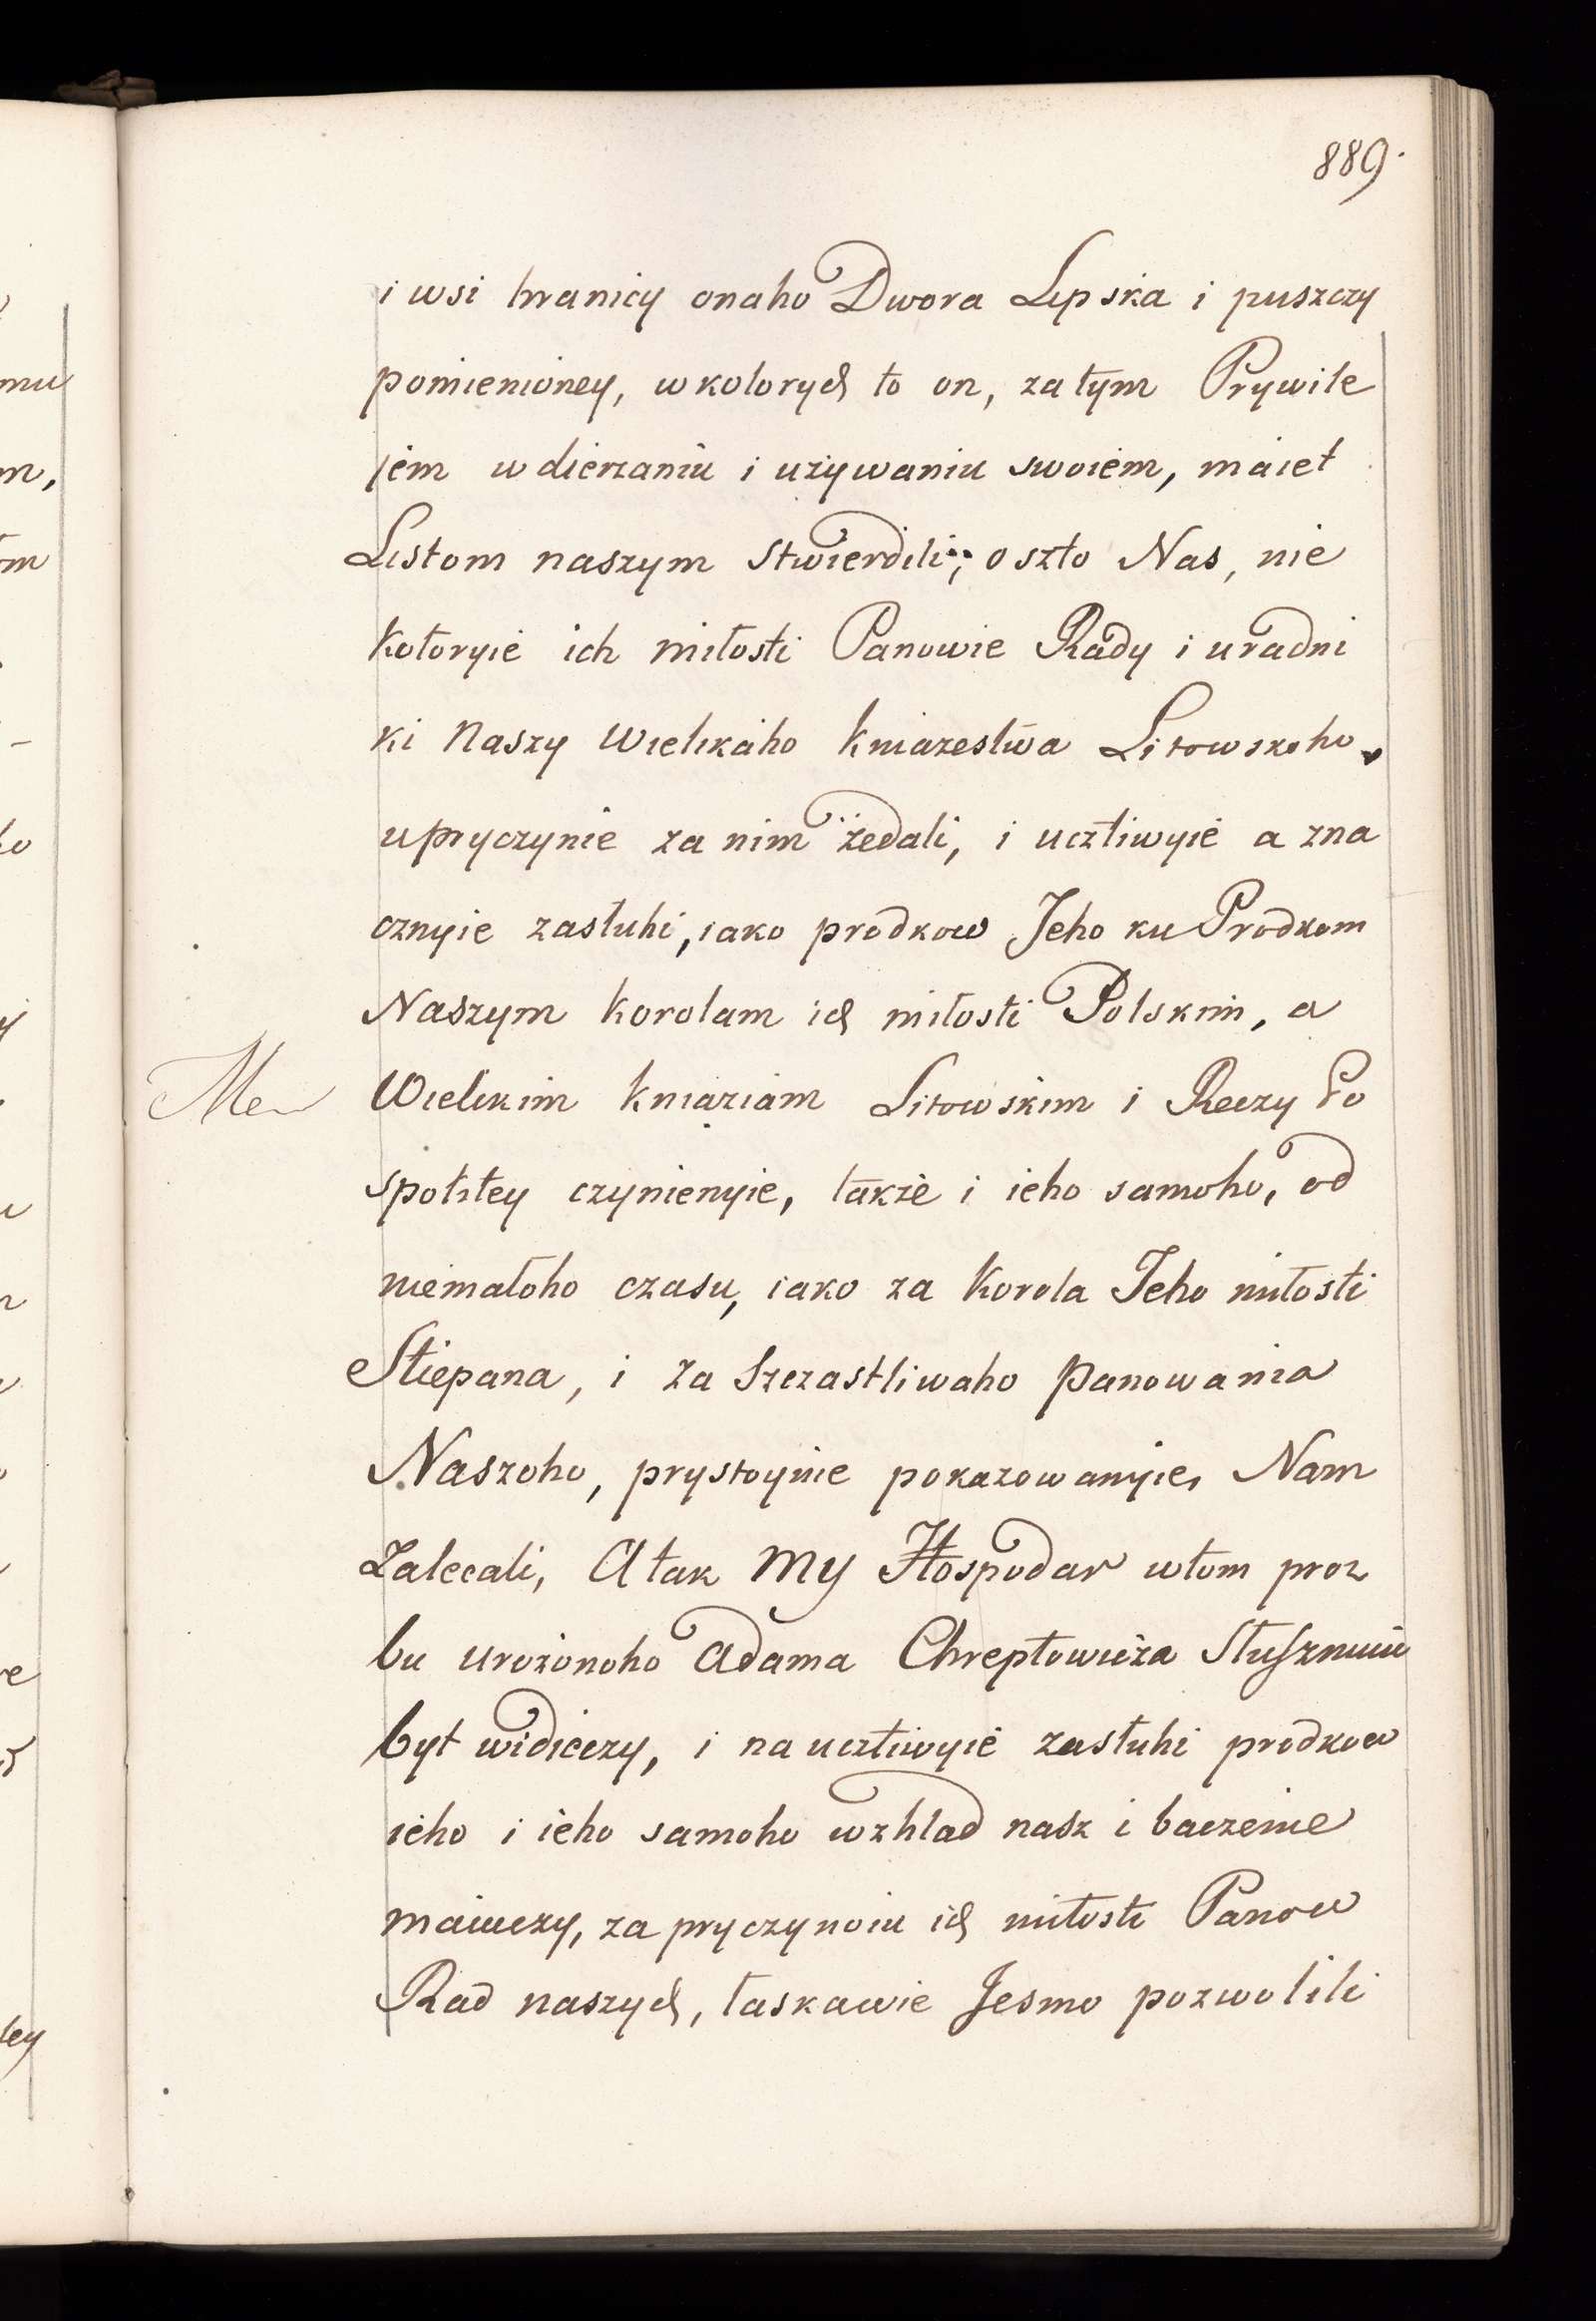 889.
i wsi hranicy onaho Dwora Lipska i puszczy
pomienioney, w kotorych to on, za tym Prywile
jem w dierzaniu i używaniu swoiem, maiet
Listom naszym stwierdili; o szto Nas, nie
kotoryie ich miłosti Panowie Rady i uradni
ki Naszy Wielikaho Kniazestwa Litowskoho,
u pryczynie za nim żedali, i ucztiwyie a zna
cznyie zasłuhi, iako prodkow Jeho ku Prodkom
Naszym Korolam ich miłosti Polskim, a
Wielikim Kniaziam Litowskim i Reczy Po
spolitey czynienyie, także i ieho samoho, od
niemałoho czasu, iako za Korola Jeho miłosti
Stiepana, i za Szczastliwaho Panowania
Naszoho, prystoynie pokazowanyie, Nam
Zalecali, A tak My Hospodar w tom proz
bu urożonoho Adama Chreptowicza Słusznuiu
byt widieczy, i na ucztiwyie zasłuhi prodkow
ieho i ieho samoho wzhlad nasz i baczenie
maiuczy, za pryczynoiu ich miłosti Panow
Rad naszych, łaskawie Jesmo pozwolili